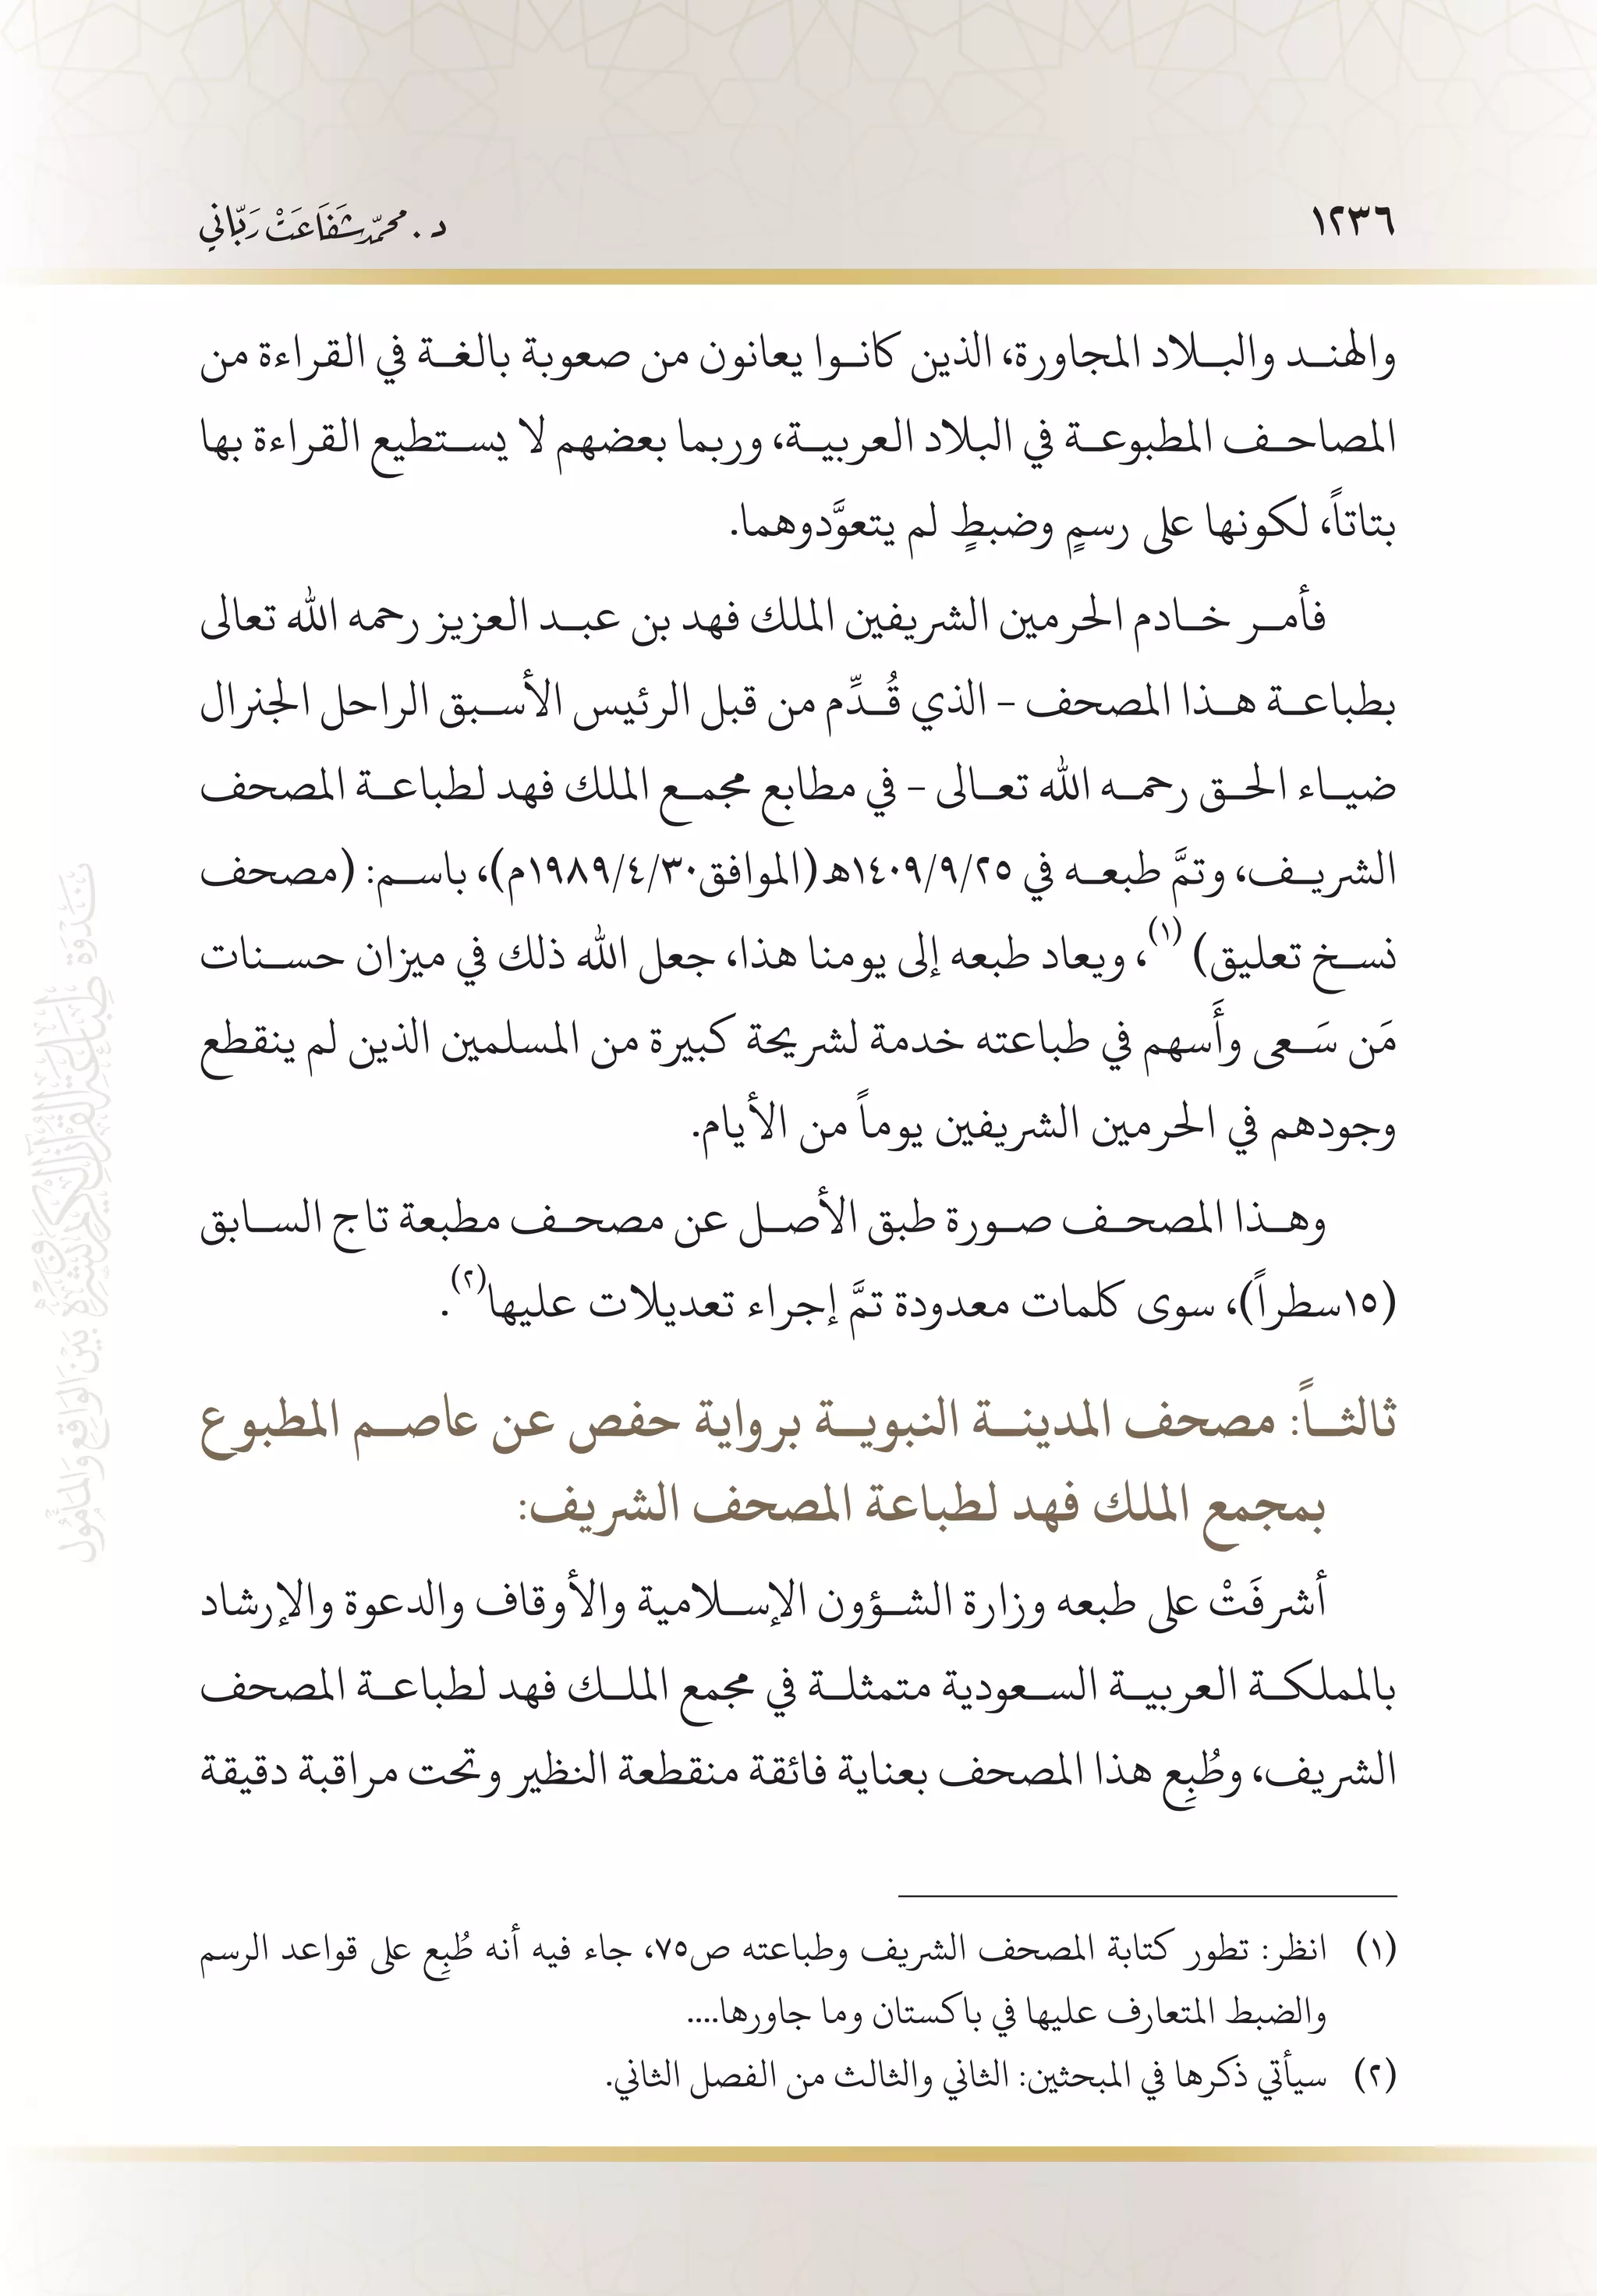 ١٢٣٦
د. محمّد شَفَاعَتْ رَبّاني
والهند والبلاد المجاورة، الذين كانوا يعانون من صعوبة بالغة في القراءة من
المصاحف المطبوعة في البلاد العربية، وربما بعضهم لا يستطيع القراءة بها
بتاتاً، لكونها على رسمٍ وضبطٍ لم يتعوَّدوهما.
فأمر خادم الحرمين الشريفين الملك فهد بن عبد العزيز رحمه الله تعالى
بطباعة هذا المصحف - الذي قُدِّم من قبل الرئيس الأسبق الراحل الجنرال
ضياء الحق رحمه الله تعالى - في مطابع مجمع الملك فهد لطباعة المصحف
الشريف، وتمَّ طبعه في ١٤٠٩/٩/٢٥ه (الموافق١٩٨٩/٤/٣٠م)، باسم: (مصحف
نسخ تعليق)(١)، ويعاد طبعه إلى يومنا هذا، جعل الله ذلك في ميزان حسنات
مَن سَعى وأَسهم في طباعته خدمة لشريحة كبيرة من المسلمين الذين لم ينقطع
وجودهم في الحرمين الشريفين يوماً من الأيام.
وهذا المصحف صورة طبق الأصل عن مصحف مطبعة تاج السابق
(١٥سطراً)، سوى كلمات معدودة تمَّ إجراء تعديلات عليها(٢).
ثالثاً: مصحف المدينة النبوية برواية حفص عن عاصم المطبوع
بمجمع الملك فهد لطباعة المصحف الشريف:
أشرفَتْ على طبعه وزارة الشؤون الإسلامية والأوقاف والدعوة والإرشاد
بالمملكة العربية السعودية متمثلة في مجمع الملك فهد لطباعة المصحف
الشريف، وطُبِع هذا المصحف بعناية فائقة منقطعة النظير وتحت مراقبة دقيقة
(١) انظر: تطور كتابة المصحف الشريف وطباعته ص٧٥، جاء فيه أنه طُبِع على قواعد الرسم
والضبط المتعارف عليها في باكستان وما جاورها....
(٢) سيأتي ذكرها في المبحثين: الثاني والثالث من الفصل الثاني.
نَدْوَة طِبَاعَةِ القُرْآنِ الكَرِيمِ وَنَشْرِهِ بَيْنَ الوَاقِعِ وَالمَأْمُول